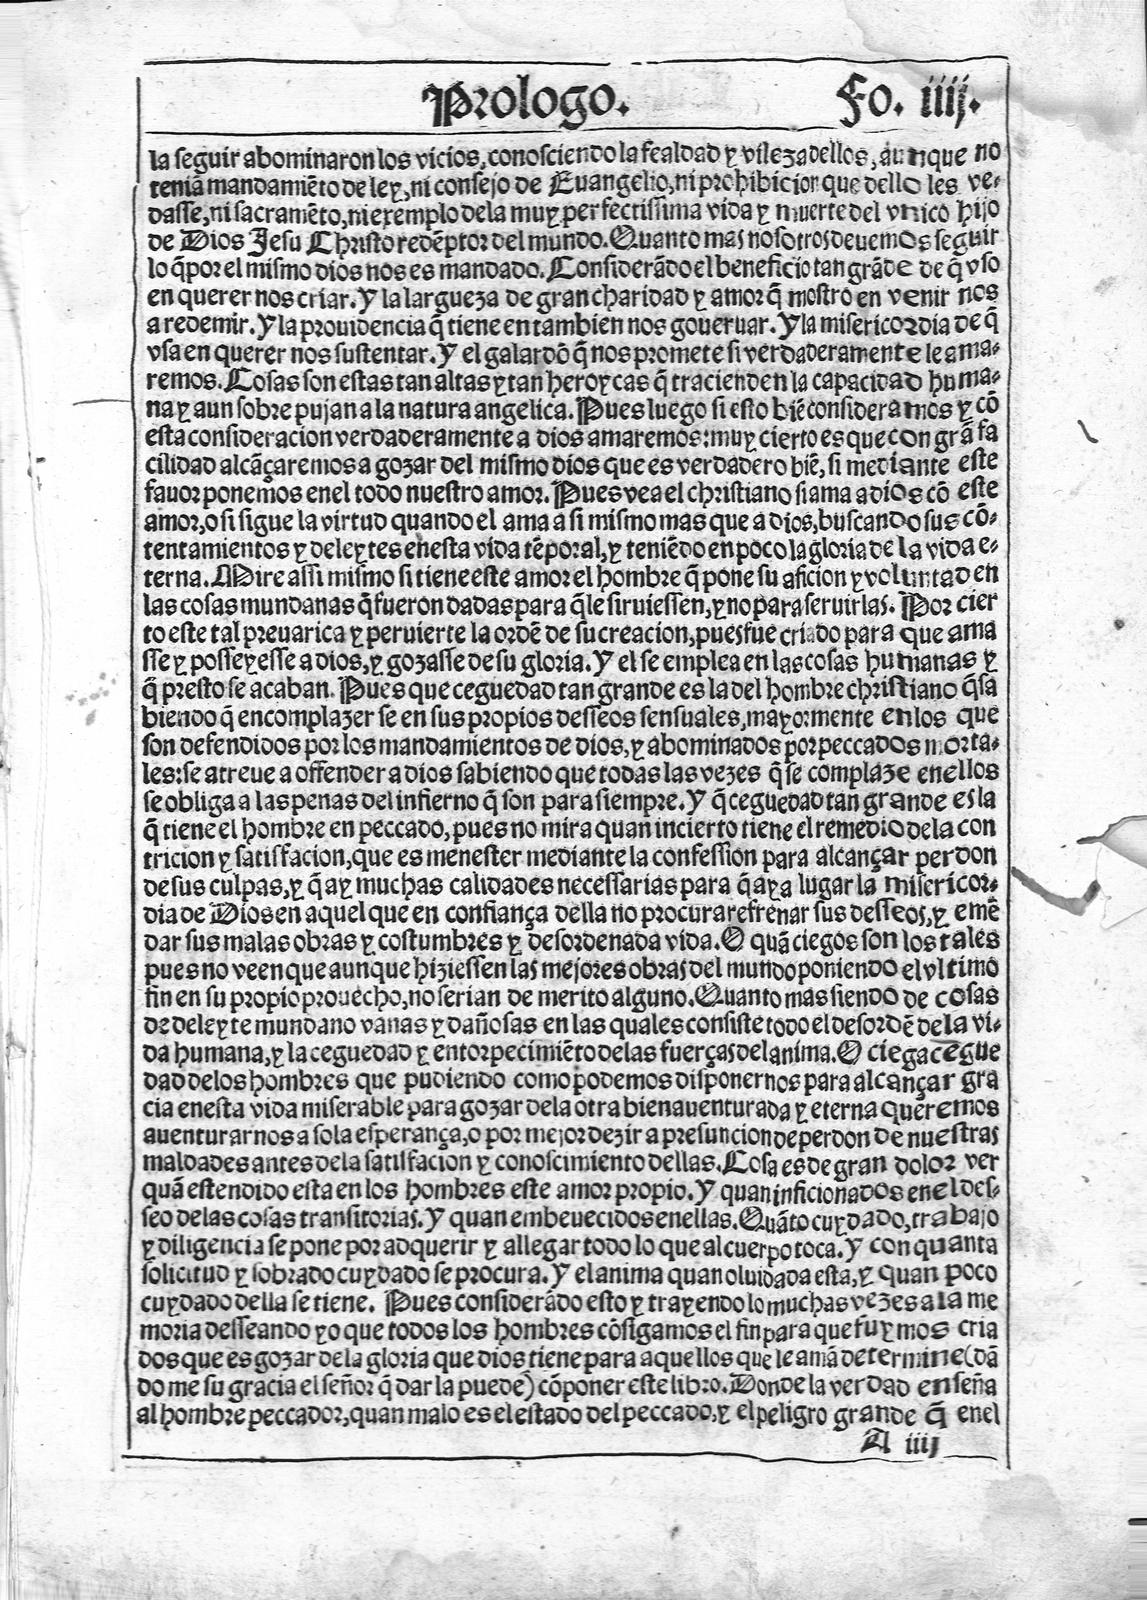 Prologo. Fo. iiij.
la seguir abominaron los vicios, conosciendo la fealdad y vileza dellos, aunque no
teniã mandamiẽto de ley, ni consejo de Euangelio, ni prohibicion que dello les ve-
dasse, ni sacramẽto, ni exemplo dela muy perfectissima vida y muerte del vnico hijo
de Dios Jesu Christo redẽptor del mundo. Quanto mas nosotros deuemos seguir
lo q̃ por el mismo dios nos es mandado. Considerãdo el beneficio tan grãde de q̃ vso
en querer nos criar. Y la largueza de gran charidad y amor q̃ mostro en venir nos
a redemir. Y la prouidencia q̃ tiene en tambien nos gouernar. Y la misericordia de q̃
vsa en querer nos sustentar. Y el galardõ q̃ nos promete si verdaderamente le ama-
remos. Cosas son estas tan altas y tan heroycas q̃ tracienden la capacidad huma-
na y aun sobre pujan a la natura angelica. Pues luego si esto biẽ consideramos y cõ
esta consideracion verdaderamente a dios amaremos: muy cierto es que con grã fa
cilidad alcãçaremos a gozar del mismo dios que es verdadero biẽ, si mediante este
fauor ponemos enel todo nuestro amor. Pues vea el christiano si ama a dios cõ este
amor, o si sigue la virtud quando el ama a si mismo mas que a dios, buscando sus cõ-
tentamientos y deleytes enesta vida tẽporal, y teniẽdo en poco la gloria de la vida e-
terna. Mire assi mismo si tiene este amor el hombre q̃ pone su aficion y voluntad en
las cosas mundanas q̃ fueron dadas para q̃ le siruiessen, y no para seruirlas. Por cier
to este tal preuarica y peruierte la ordẽ de su creacion, pues fue criado para que ama
sse y posseyesse a dios, y gozasse de su gloria. Y el se emplea en las cosas humanas y
q̃ presto se acaban. Pues que ceguedad tan grande es la del hombre christiano q̃ sa
biendo q̃ en complazer se en sus propios desseos sensuales, mayormente en los que
son defendidos por los mandamientos de dios, y abominados por peccados morta-
les: se atreue a offender a dios sabiendo que todas las vezes q̃ se complaze enellos
se obliga a las penas del infierno q̃ son para siempre. Y q̃ ceguedad tan grande es la
q̃ tiene el hombre en peccado, pues no mira quan incierto tiene el remedio de la con
tricion y satisfacion, que es menester mediante la confession para alcançar perdon
de sus culpas, y q̃ ay muchas calidades necessarias para q̃ aya lugar la misericor-
dia de Dios en aquel que en confiança della no procura refrenar sus desseos, y emẽ
dar sus malas obras y costumbres y desordenada vida. O quã ciegos son los tales
pues no veen que aunque hiziessen las mejores obras del mundo poniendo el vltimo
fin en su propio prouecho, no serian de merito alguno. Quanto mas siendo de cosas
de deleyte mundano vanas y dañosas en las quales consiste todo el desordẽ de la vi-
da humana, y la ceguedad y entorpecimiẽto de las fuerças del anima. O ciega cegue
dad de los hombres que pudiendo como podemos disponernos para alcançar gra
cia enesta vida miserable para gozar dela otra bienauenturada y eterna queremos
auenturarnos a sola esperança, o por mejor dezir a presuncion de perdon de nuestras
maldades antes dela satisfacion y conoscimiento dellas. Cosa es de gran dolor ver
quã estendido esta en los hombres este amor propio. Y quan inficionados enel des-
seo de las cosas transitorias. Y quan embeuecidos enellas. Quãto cuydado, trabajo
y diligencia se pone por adquerir y allegar todo lo que al cuerpo toca. Y con quanta
solicitud y sobrado cuydado se procura. Y el anima quan oluidada esta, y quan poco
cuydado della se tiene. Pues considerãdo esto y trayendo lo muchas vezes a la me
moria desseando yo que todos los hombres cõsigamos el fin para que fuymos cria
dos que es gozar de la gloria que dios tiene para aquellos que le amã determine (dã
do me su gracia el señor q̃ dar la puede) cõponer este libro. Donde la verdad enseña
al hombre peccador, quan malo es el estado del peccado, y el peligro grande q̃ enel
A iiij